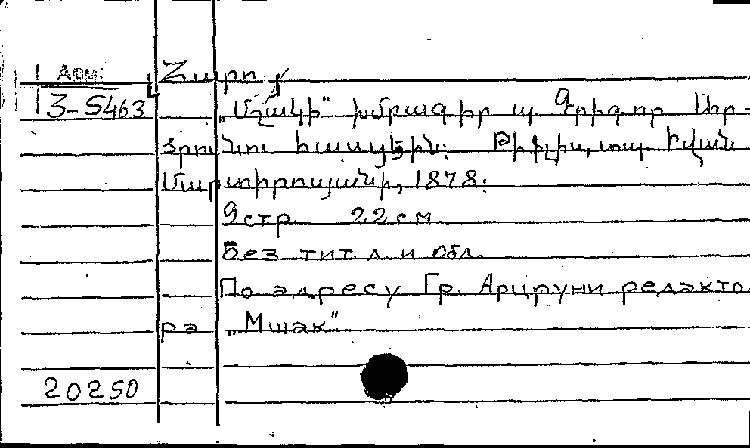 Арм.
3-5463
„Մշակի" խմբագիր պ. Գրիգոր Արծրունու հասցեին: Թիֆլիս, տպ. Իվան
Մարտիրոսյանի, 1878:
9 стр. 22 см
Без тит. л. и обл.
По адресу Гр. Арцруни редакто
ра „Мшак"
20250